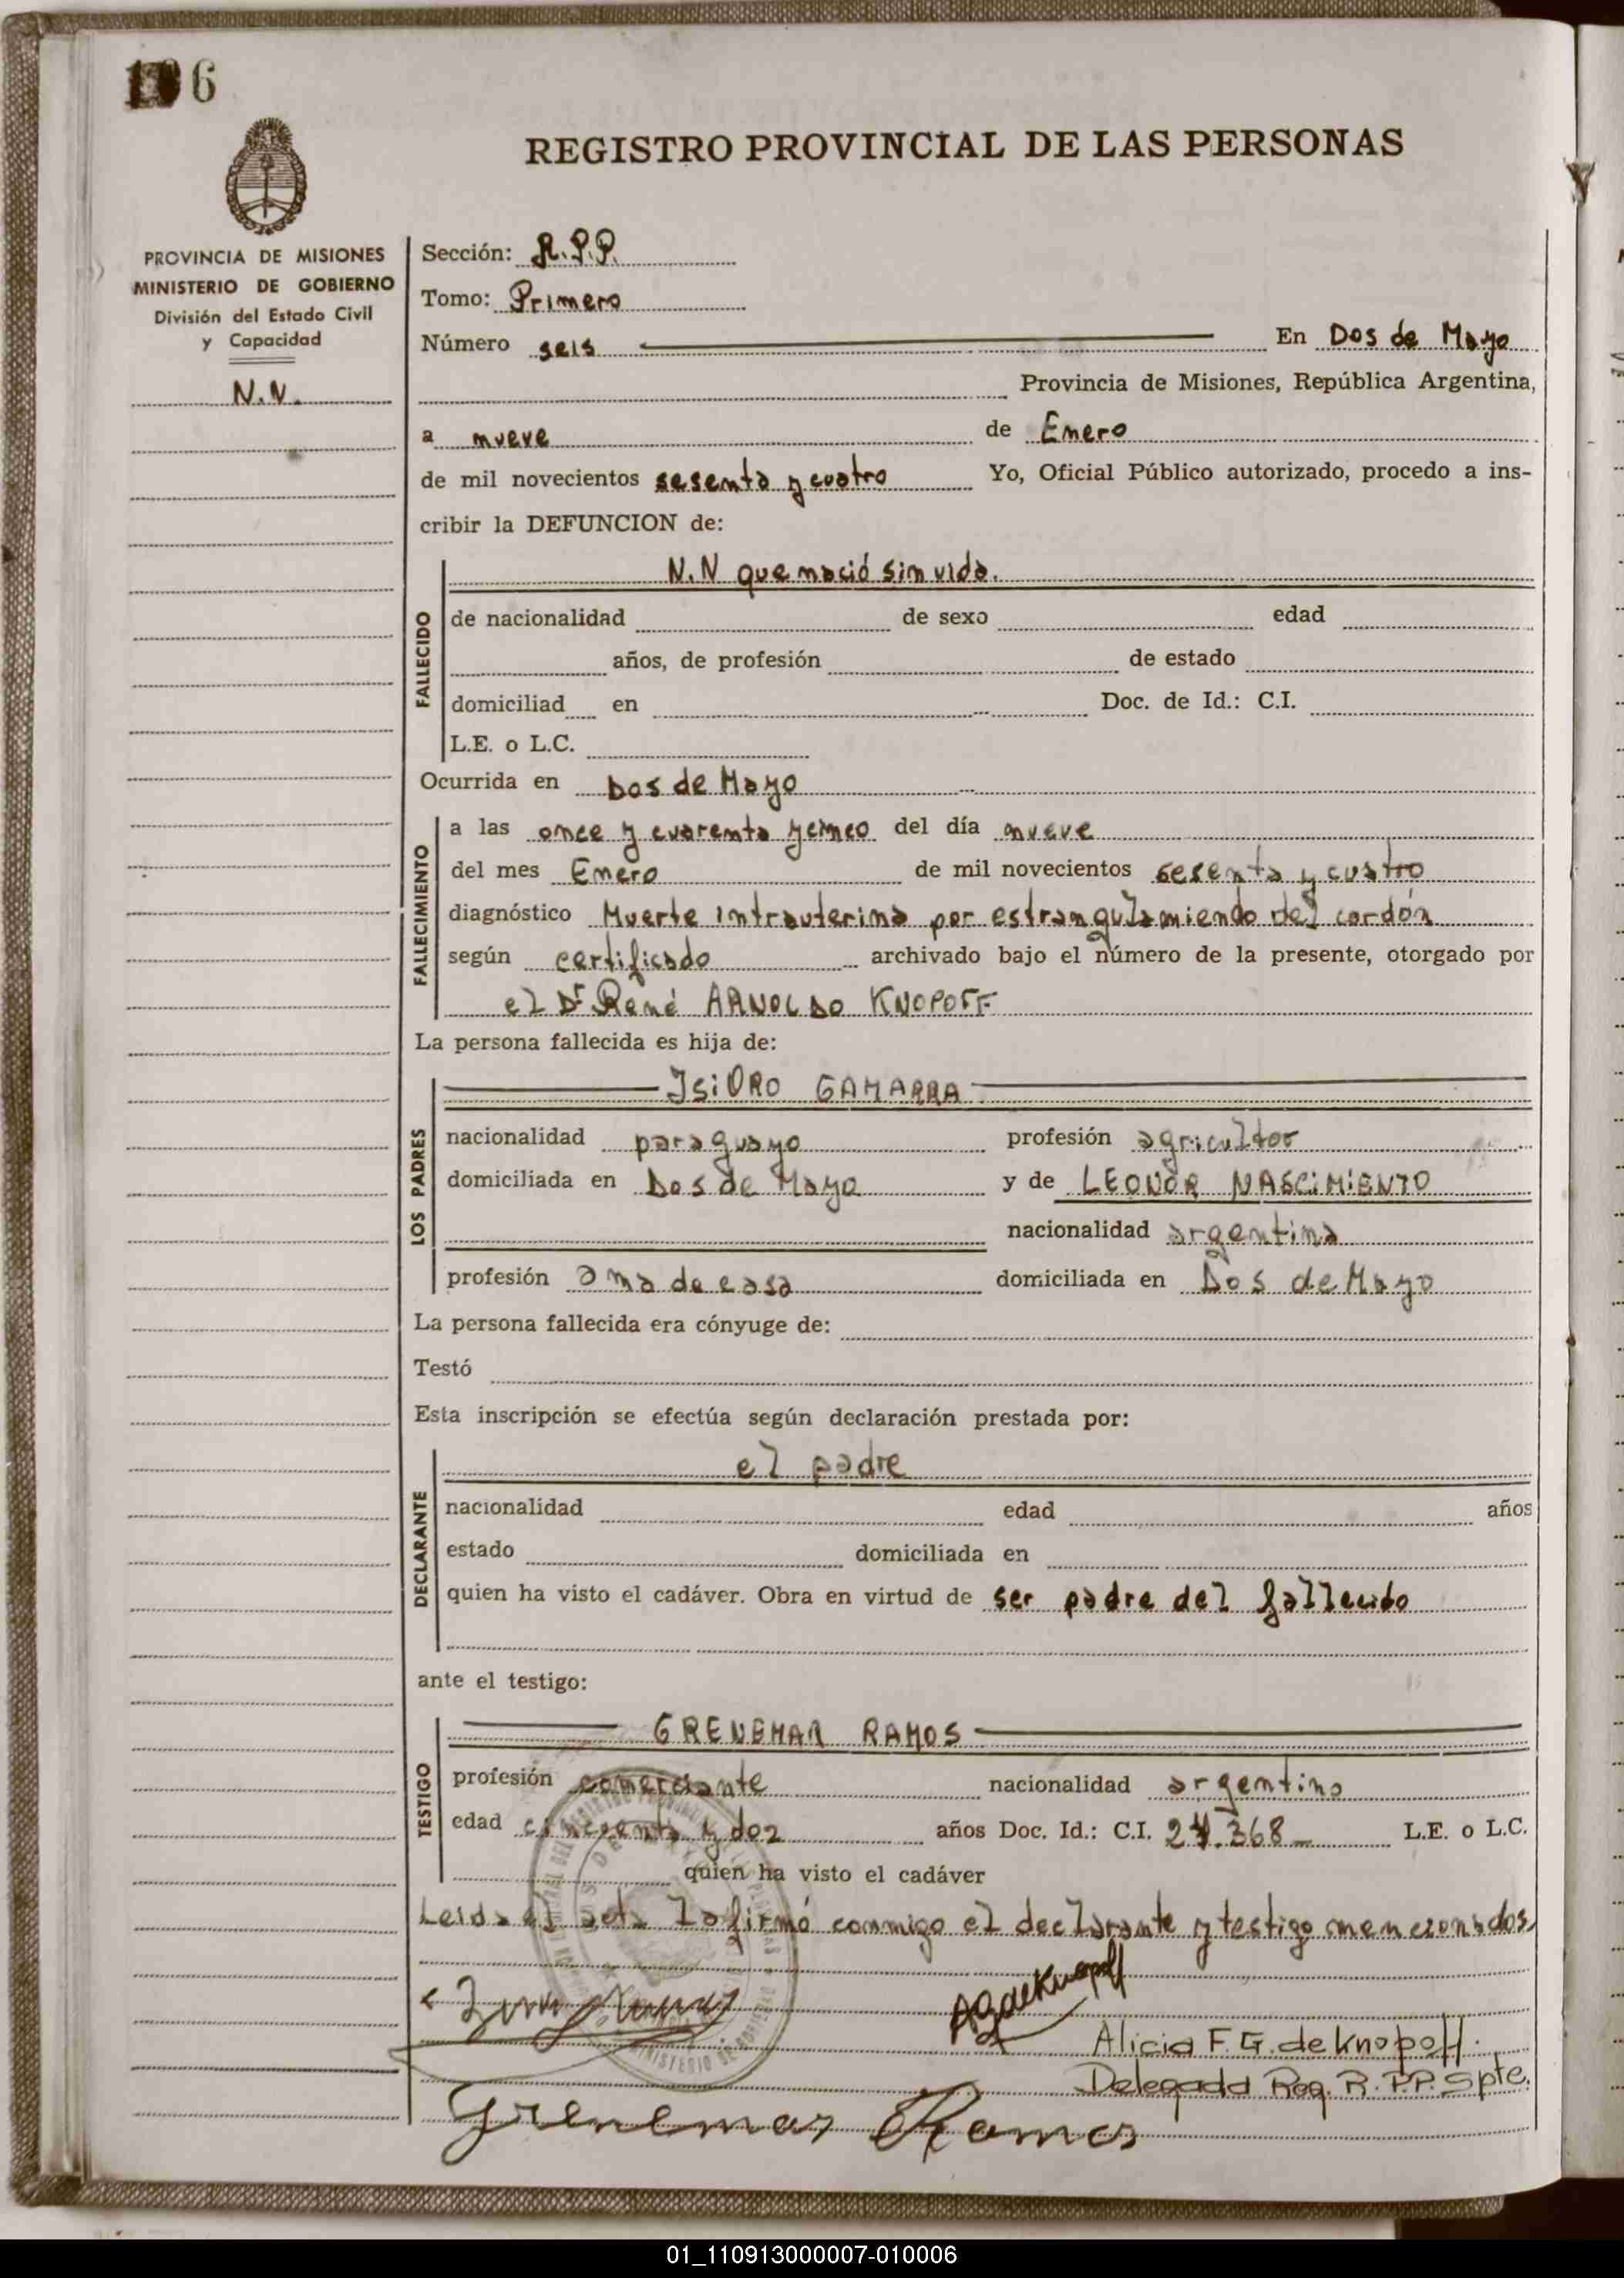 6
REGISTRO PROVINCIAL DE LAS PERSONAS
PROVINCIA DE MISIONES
MINISTERIO DE GOBIERNO
División del Estado Civil
y Capacidad
N.N.
Sección: R.P.P.
Tomo: Primero
Número seis En Dos de Mayo
Provincia de Misiones, República Argentina,
a nueve de Enero
de mil novecientos sesenta y cuatro Yo, Oficial Público autorizado, procedo a ins-
cribir la DEFUNCION de:
N.N que nació sin vida.
FALLECIDO
de nacionalidad de sexo edad
años, de profesión de estado
domiciliad en Doc. de Id.: C.I.
L.E. o L.C.
Ocurrida en Dos de Mayo
FALLECIMIENTO
a las once y cuarenta y cinco del día nueve
del mes Enero de mil novecientos sesenta y cuatro
diagnóstico Muerte intrauterina por estrangulamiendo del cordón
según certificado archivado bajo el número de la presente, otorgado por
el Dr René ARNOLDO KNOPOFF
La persona fallecida es hija de:
ISIDRO GAMARRA
LOS PADRES
nacionalidad paraguayo profesión agricultor
domiciliada en Dos de Mayo y de LEONOR NASCIMIENTO
nacionalidad argentina
profesión ama de casa domiciliada en Dos de Mayo
La persona fallecida era cónyuge de:
Testó
Esta inscripción se efectúa según declaración prestada por:
el padre
DECLARANTE
nacionalidad edad años
estado domiciliada en
quien ha visto el cadáver. Obra en virtud de ser padre del fallecido
ante el testigo:
GRENEMAR RAMOS
TESTIGO
profesión comerciante nacionalidad argentino
edad cincuenta y dos años Doc. Id.: C.I. L.E. o L.C.
quien ha visto el cadáver
Leida el acta la firmó conmigo el declarante y testigo mencionados
AGdeKnopoff
Alicia F. G. de Knopoff.
Delegada Reg. R.P.P. Spte.
Grenemar Ramos
01_110913000007-010006